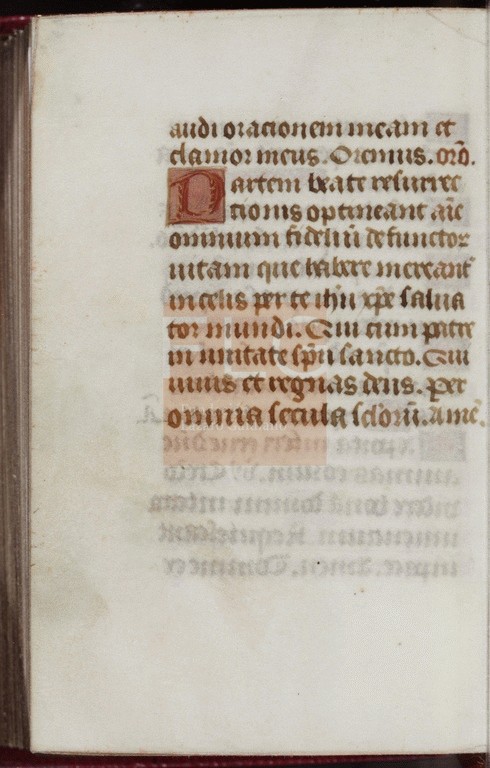 audi orationem meam et
clamor meus. Oremus. orō.
Partem beate resurrec
tionis optineant aīe
omnium fideliū defunctoꝝ
uitam que habere mereant᷑
in celis per te ihū xp̄e salua
tor mundi. Qui cum patre
in unitate sp̄u sancto. Qui
uiuis et regnas deus. Per
omnia secula sclorū. Amē.